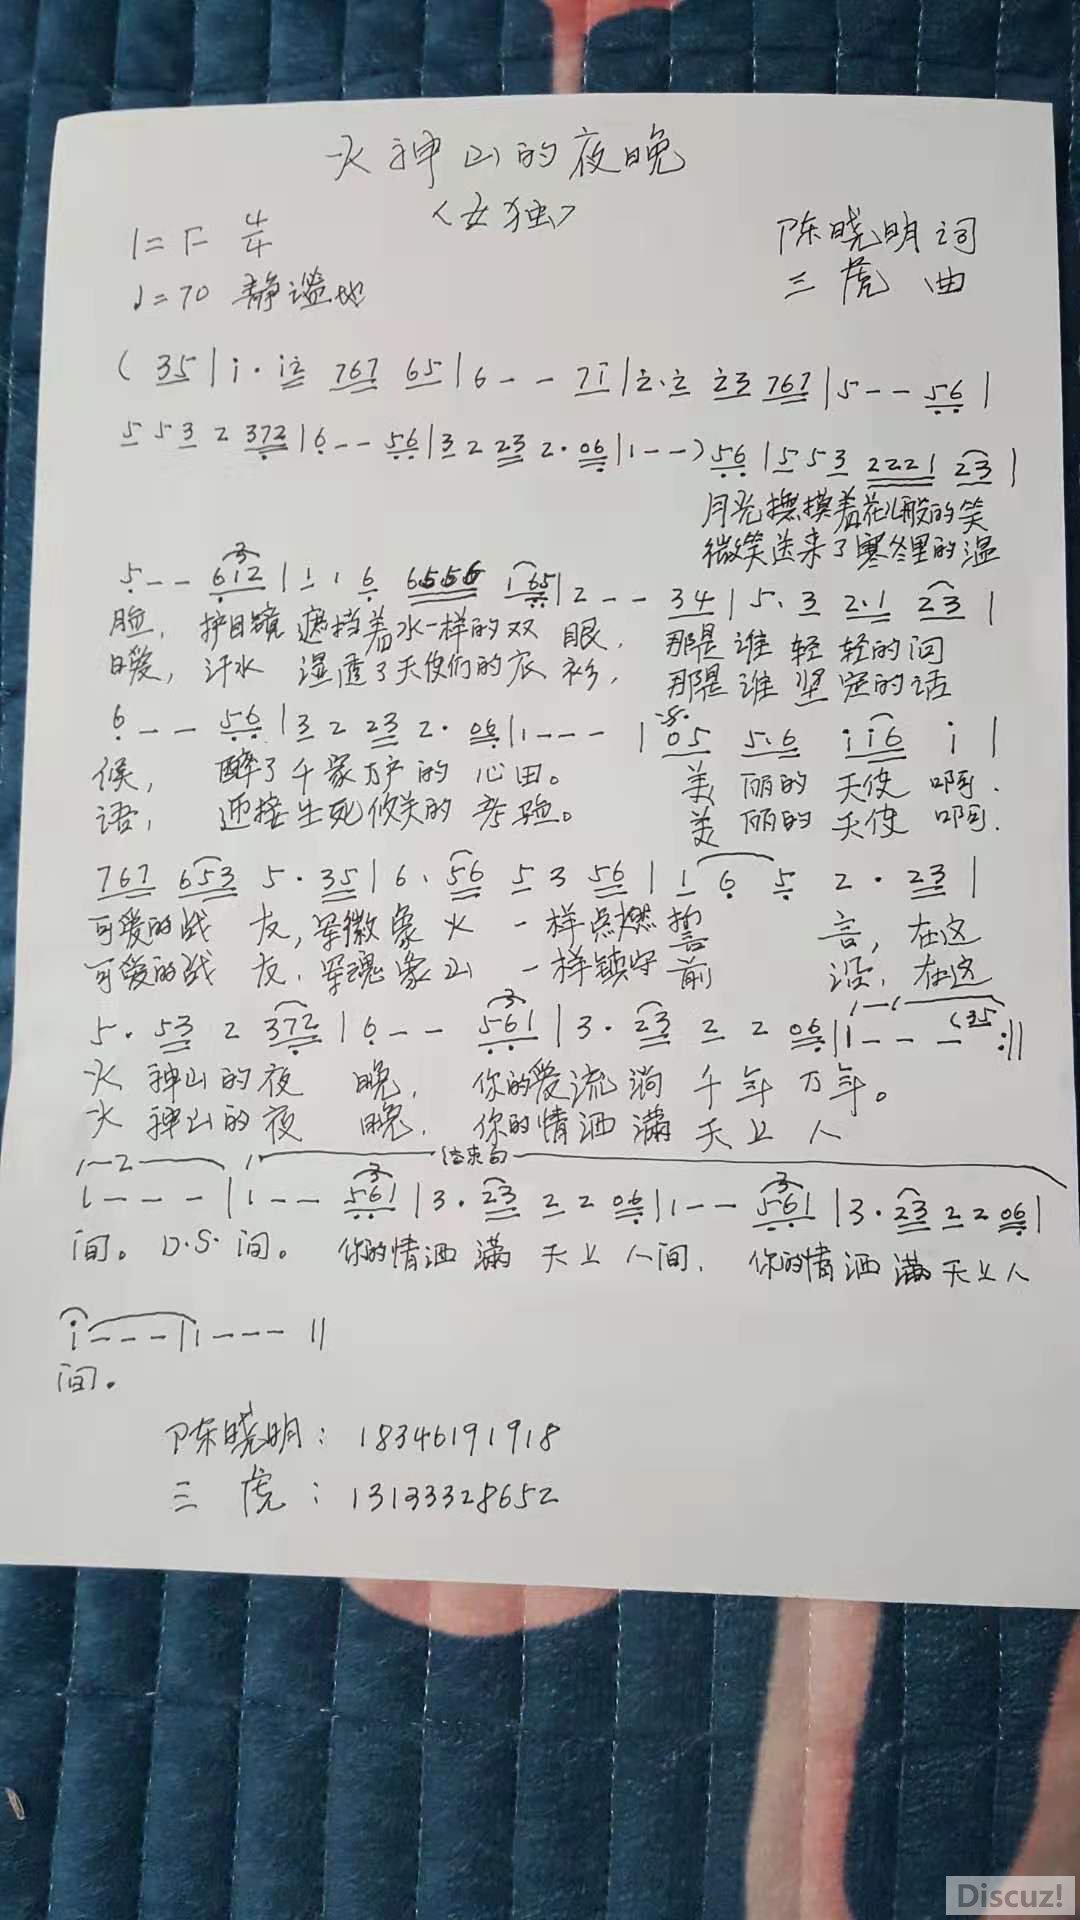 火神山的夜晚
<女独>
1=F 4/4
陈晓明词
♩=70 静谧地
三虎 曲
( 35 | i· i2 767 65 | 6 - - 7i | 2·2 23 767 | 5 - - 56 |
5 5 3 2 372 | 6 - - 56 | 3 2 23 2· 06 | 1 - - ) 56 | 5 5 3 2221 23 |
月光抚摸着花儿般的笑
微笑送来了寒冬里的温
5 - - 612 | 1 1 6 6556 1 65 | 2 - - 34 | 5·3 2·1 23 |
脸, 护目镜遮挡着水一样的双眼, 那是谁轻轻的问
暖, 汗水 湿透了天使们的衣衫, 那是谁坚定的话
6 - - 56 | 3 2 23 2· 06 | 1 - - - | 05 5·6 i i6 i |
候, 醉了千家万户的心田。 美丽的天使啊.
语, 迎接生死攸关的考验。 美丽的天使啊.
767 653 5· 35 | 6· 56 5 3 56 | 1 6 5 2· 23 |
可爱的战友, 军徽象火一样点燃誓言, 在这
可爱的战友, 军魂象山一样镇守前沿, 在这
5· 53 2 372 | 6 - - 561 | 3· 23 2 2 06 | 1 - - - (35 :||
火神山的夜晚, 你的爱流淌千年万年。
火神山的夜晚, 你的情洒满天上人
2 结束句
1 - - - | 1 - - 561 | 3· 23 2 2 06 | 1 - - 561 | 3· 23 2 2 06 |
间。D.S. 间。 你的情洒满天上人间, 你的情洒满天上人
i - - - | i - - - ||
间。
陈晓明: 18346191918
三 虎: 13133328652
Discuz!